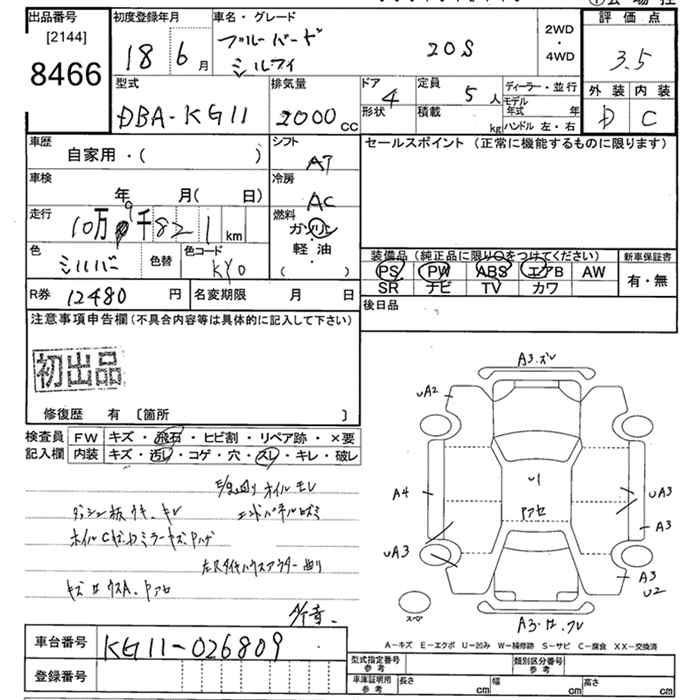 出品番号 初度登録年月 車名・グレード 評価点
[2144] 2WD・4WD
8466 18 6月 ブルーバード シルフィ 20S 3.5
型式 排気量 ドア 定員 ディーラー・並行 外装 内装
DBA-KG11 2000cc 4 5人 モデル年式 年 D C
形状 積載 kg ハンドル 左・右
車歴 シフト セールスポイント (正常に機能するものに限ります)
自家用・( ) AT
車検 冷房
年 月( 日) AC
走行 燃料
10万9千821km ガソリン
色 色替 色コード 軽油
シルバー KY0 ( )
装備品(純正品に限り○をつけてください) 新車保証書
PS PW ABS エアB AW 有・無
SR ナビ TV カワ
R券 12480円 名変期限 月 日 後日品
注意事項申告欄(不具合内容等は具体的に記入して下さい)
初出品
修復歴 有 [箇所 ]
検査員 FW キズ・飛石・ヒビ割・リペア跡・×要
記入欄 内装 キズ・汚レ・コゲ・穴・スレ・キレ・破レ
オイルモレ
ダッシュ板ウキ、キレ エンドパネル
ホイルCゼンワミラーキズ、Pハゲ
A3.ズレ
UA2
U1
A4 Pアセ UA3
A3
UA3 A3
U2
スペア
A3.
A-キズ E-エクボ U-凹み W-補修跡 S-サビ C-腐食 XX-交換済
車台番号 KG11-026809
型式指定番号 参考 類別区分番号 参考
登録番号 車庫証明用 参考 長さ cm 幅 cm 高さ cm